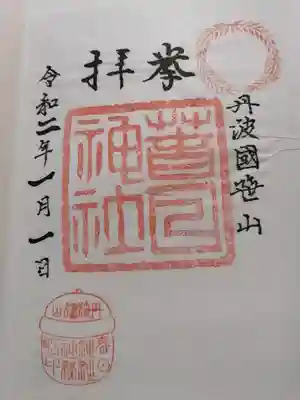 奉拝
丹波國笹山
春日
神社
令和二年一月一日